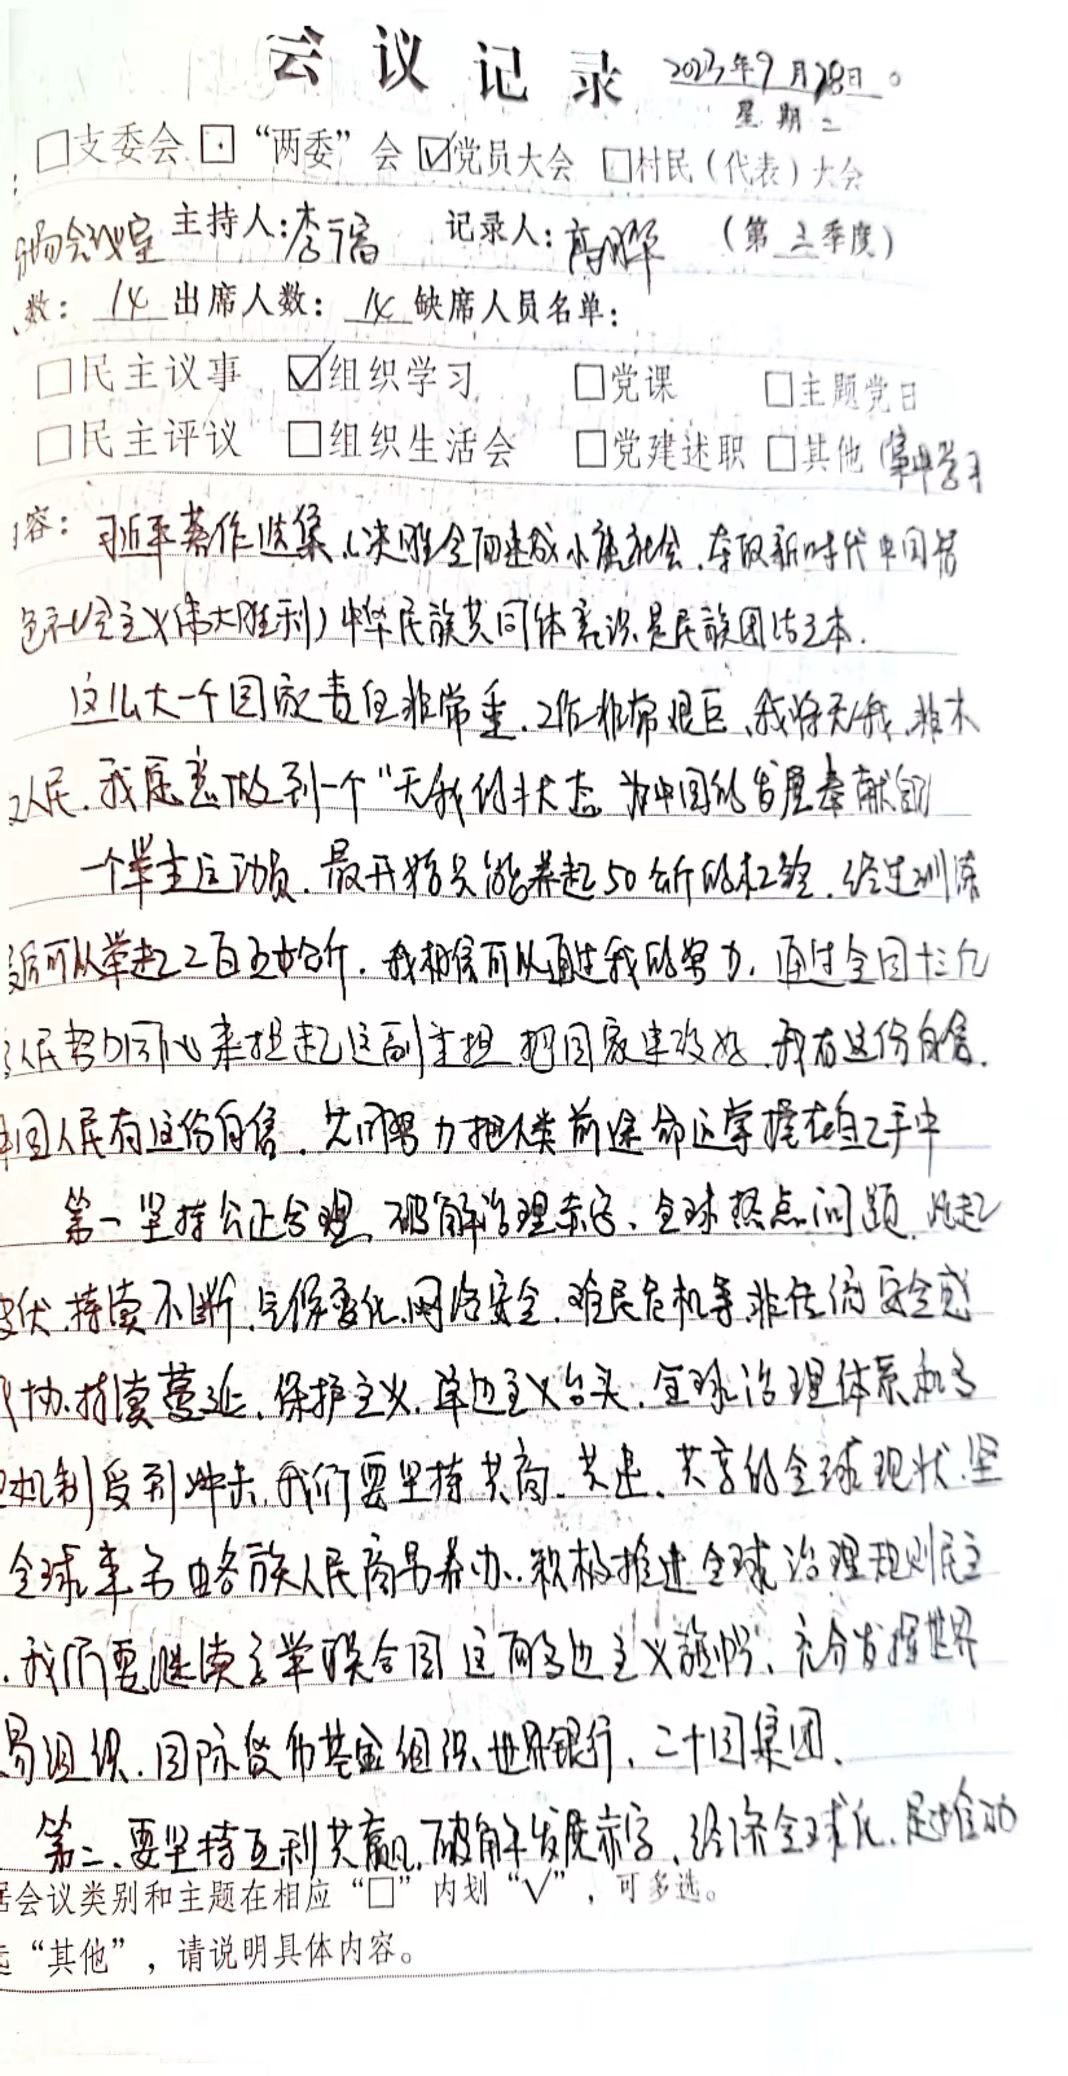 会议记录 2023年9月28日
星期二
□支委会 □“两委”会 ☑党员大会 □村民（代表）大会
会议室 主持人：李福 记录人：高晔 （第三季度）
数：14 出席人数：14 缺席人员名单：
□民主议事 ☑组织学习 □党课 □主题党日
□民主评议 □组织生活会 □党建述职 □其他（集中学习
容：习近平著作选集（决胜全面建成小康社会、夺取新时代中国特
色社会主义伟大胜利）中华民族共同体意识是民族团结之本.
这么大一个国家责任非常重.工作非常艰巨、我将无我.
人民.我愿意做到一个“无我的状态 为中国的发展奉献自己
一个举重运动员.最开始只能举起50公斤的杠铃.经过训练
后可以举起二百五十公斤.我相信可以通过我的努力.通过全国十三亿
人民努力同心来担起这副重担 把国家建设好.我有这份自信.
中国人民有这份自信.共同努力把人类前途命运掌握在自己手中
第一 坚持公正合理、破解治理赤字、全球热点问题.此起
彼伏.持续不断.气候变化.网络安全.难民危机等非传统安全
胁.持续蔓延.保护主义.单边主义台头.全球治理体系和多
机制受到冲击.我们要坚持共商.共建.共享的全球现状.坚
全球事务由各族人民商易养办..积极推进全球治理规则民主
.我们要继续高举联合国这面多边主义旗帜、充分发挥世界
易组织.国际货币基金组织、世界银行、二十国集团、
第二、要坚持互利共赢.破解发展赤字、经济全球化.是推动
会议类别和主题在相应“□”内划“√”，可多选。
“其他”，请说明具体内容。